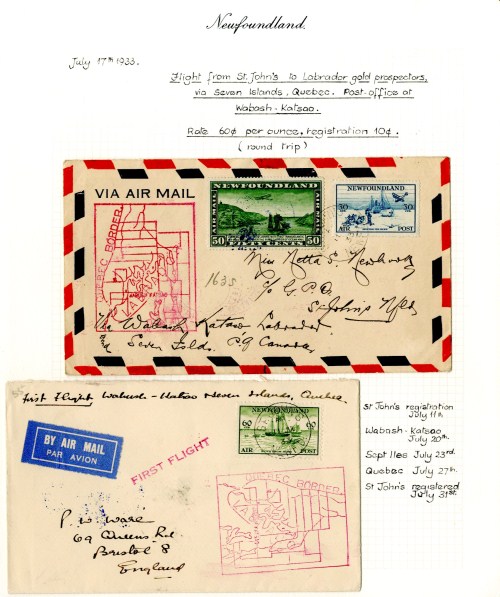 Newfoundland.
July 17th 1933.
Flight from St. John's to Labrador gold prospectors,
via Seven Islands, Quebec. Post-office at
Wabash - Katsao.
Rate 60¢ per ounce, registration 10¢.
(round trip)
VIA AIR MAIL
NEWFOUNDLAND
AIR MAIL
AIR MAIL
50 FIFTY CENTS 50
NEWFOUNDLAND
30 30
AIR POST
QUEBEC BORDER
LABRADOR
1635
Miss Netta S.
c/o G.P.O.
St John's Nfld
Via Wabash Katsao Labrador
and Seven Islds. P.Q. Canada
First Flight Wabush - Katsao & Seven Islands, Quebec
BY AIR MAIL
PAR AVION
FIRST FLIGHT
NEWFOUNDLAND
60 60
AIR POST
QUEBEC BORDER
P. W. Ware
69 Queens Rd.
Bristol 8
England
St John's registration
July 11th.
Wabash - Katsao
July 20th.
Sept Iles July 23rd.
Quebec July 27th.
St John's registered
July 31st.